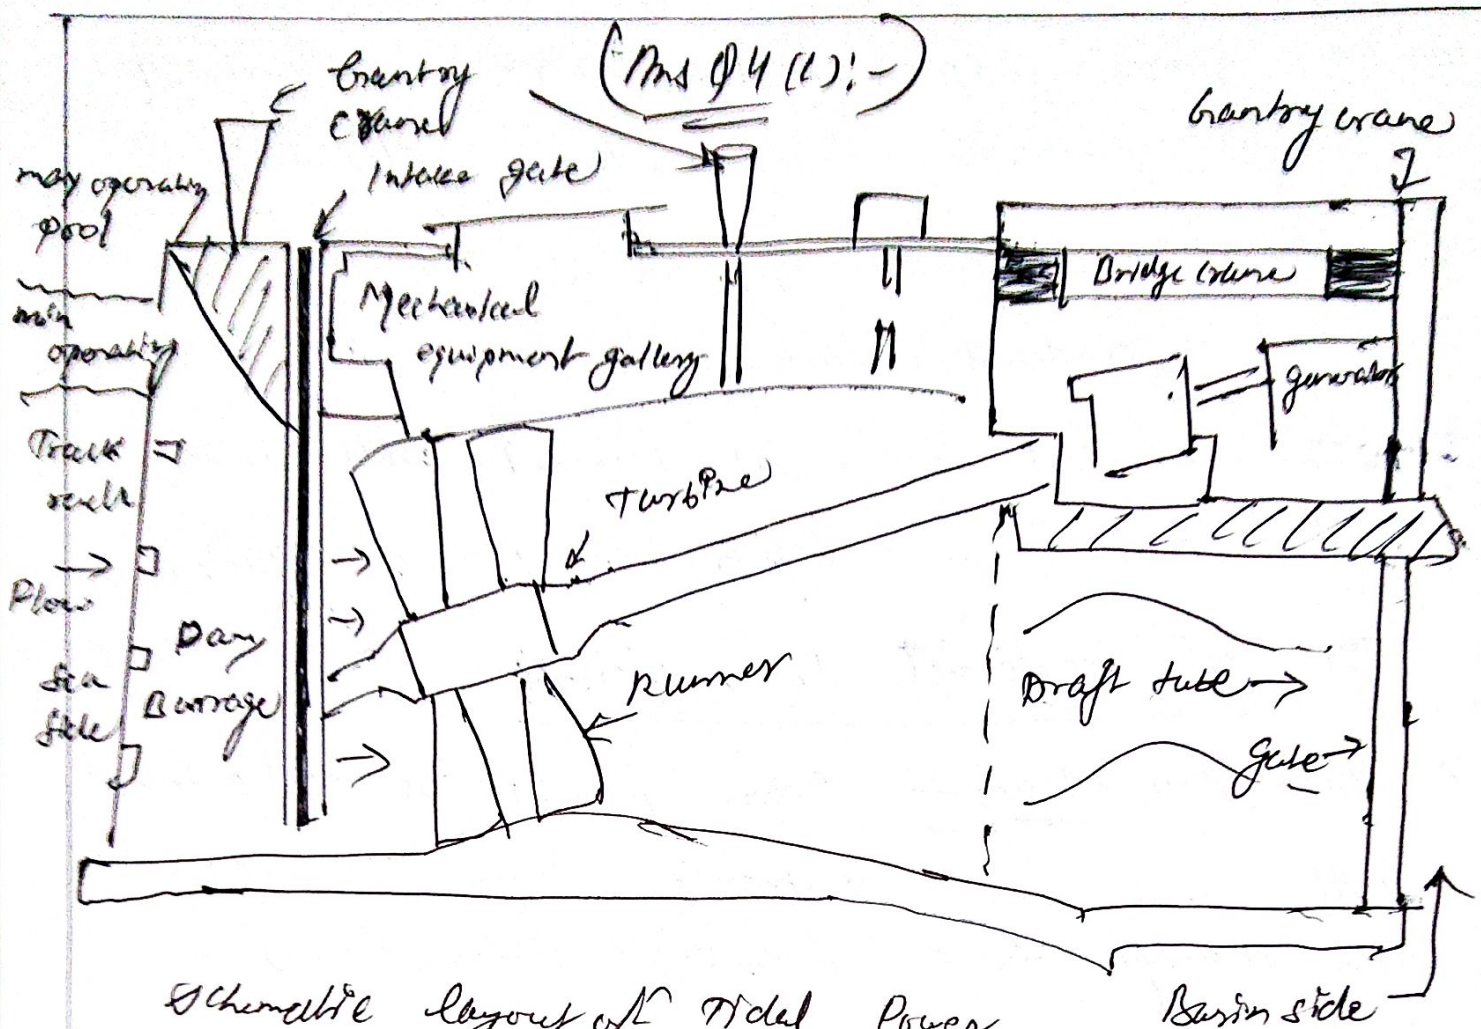 (Ans Q4 (c):-)
Gantry
crane
Gantry crane
Intake gate
max operating
pool
min
operating
Mechanical
equipment gallery
Bridge crane
generator
Track
rack
Turbine
Flow
Dam
Barrage
Sea
side
Runner
Draft tube
gate
Schematic layout of Tidal Power
Basin side